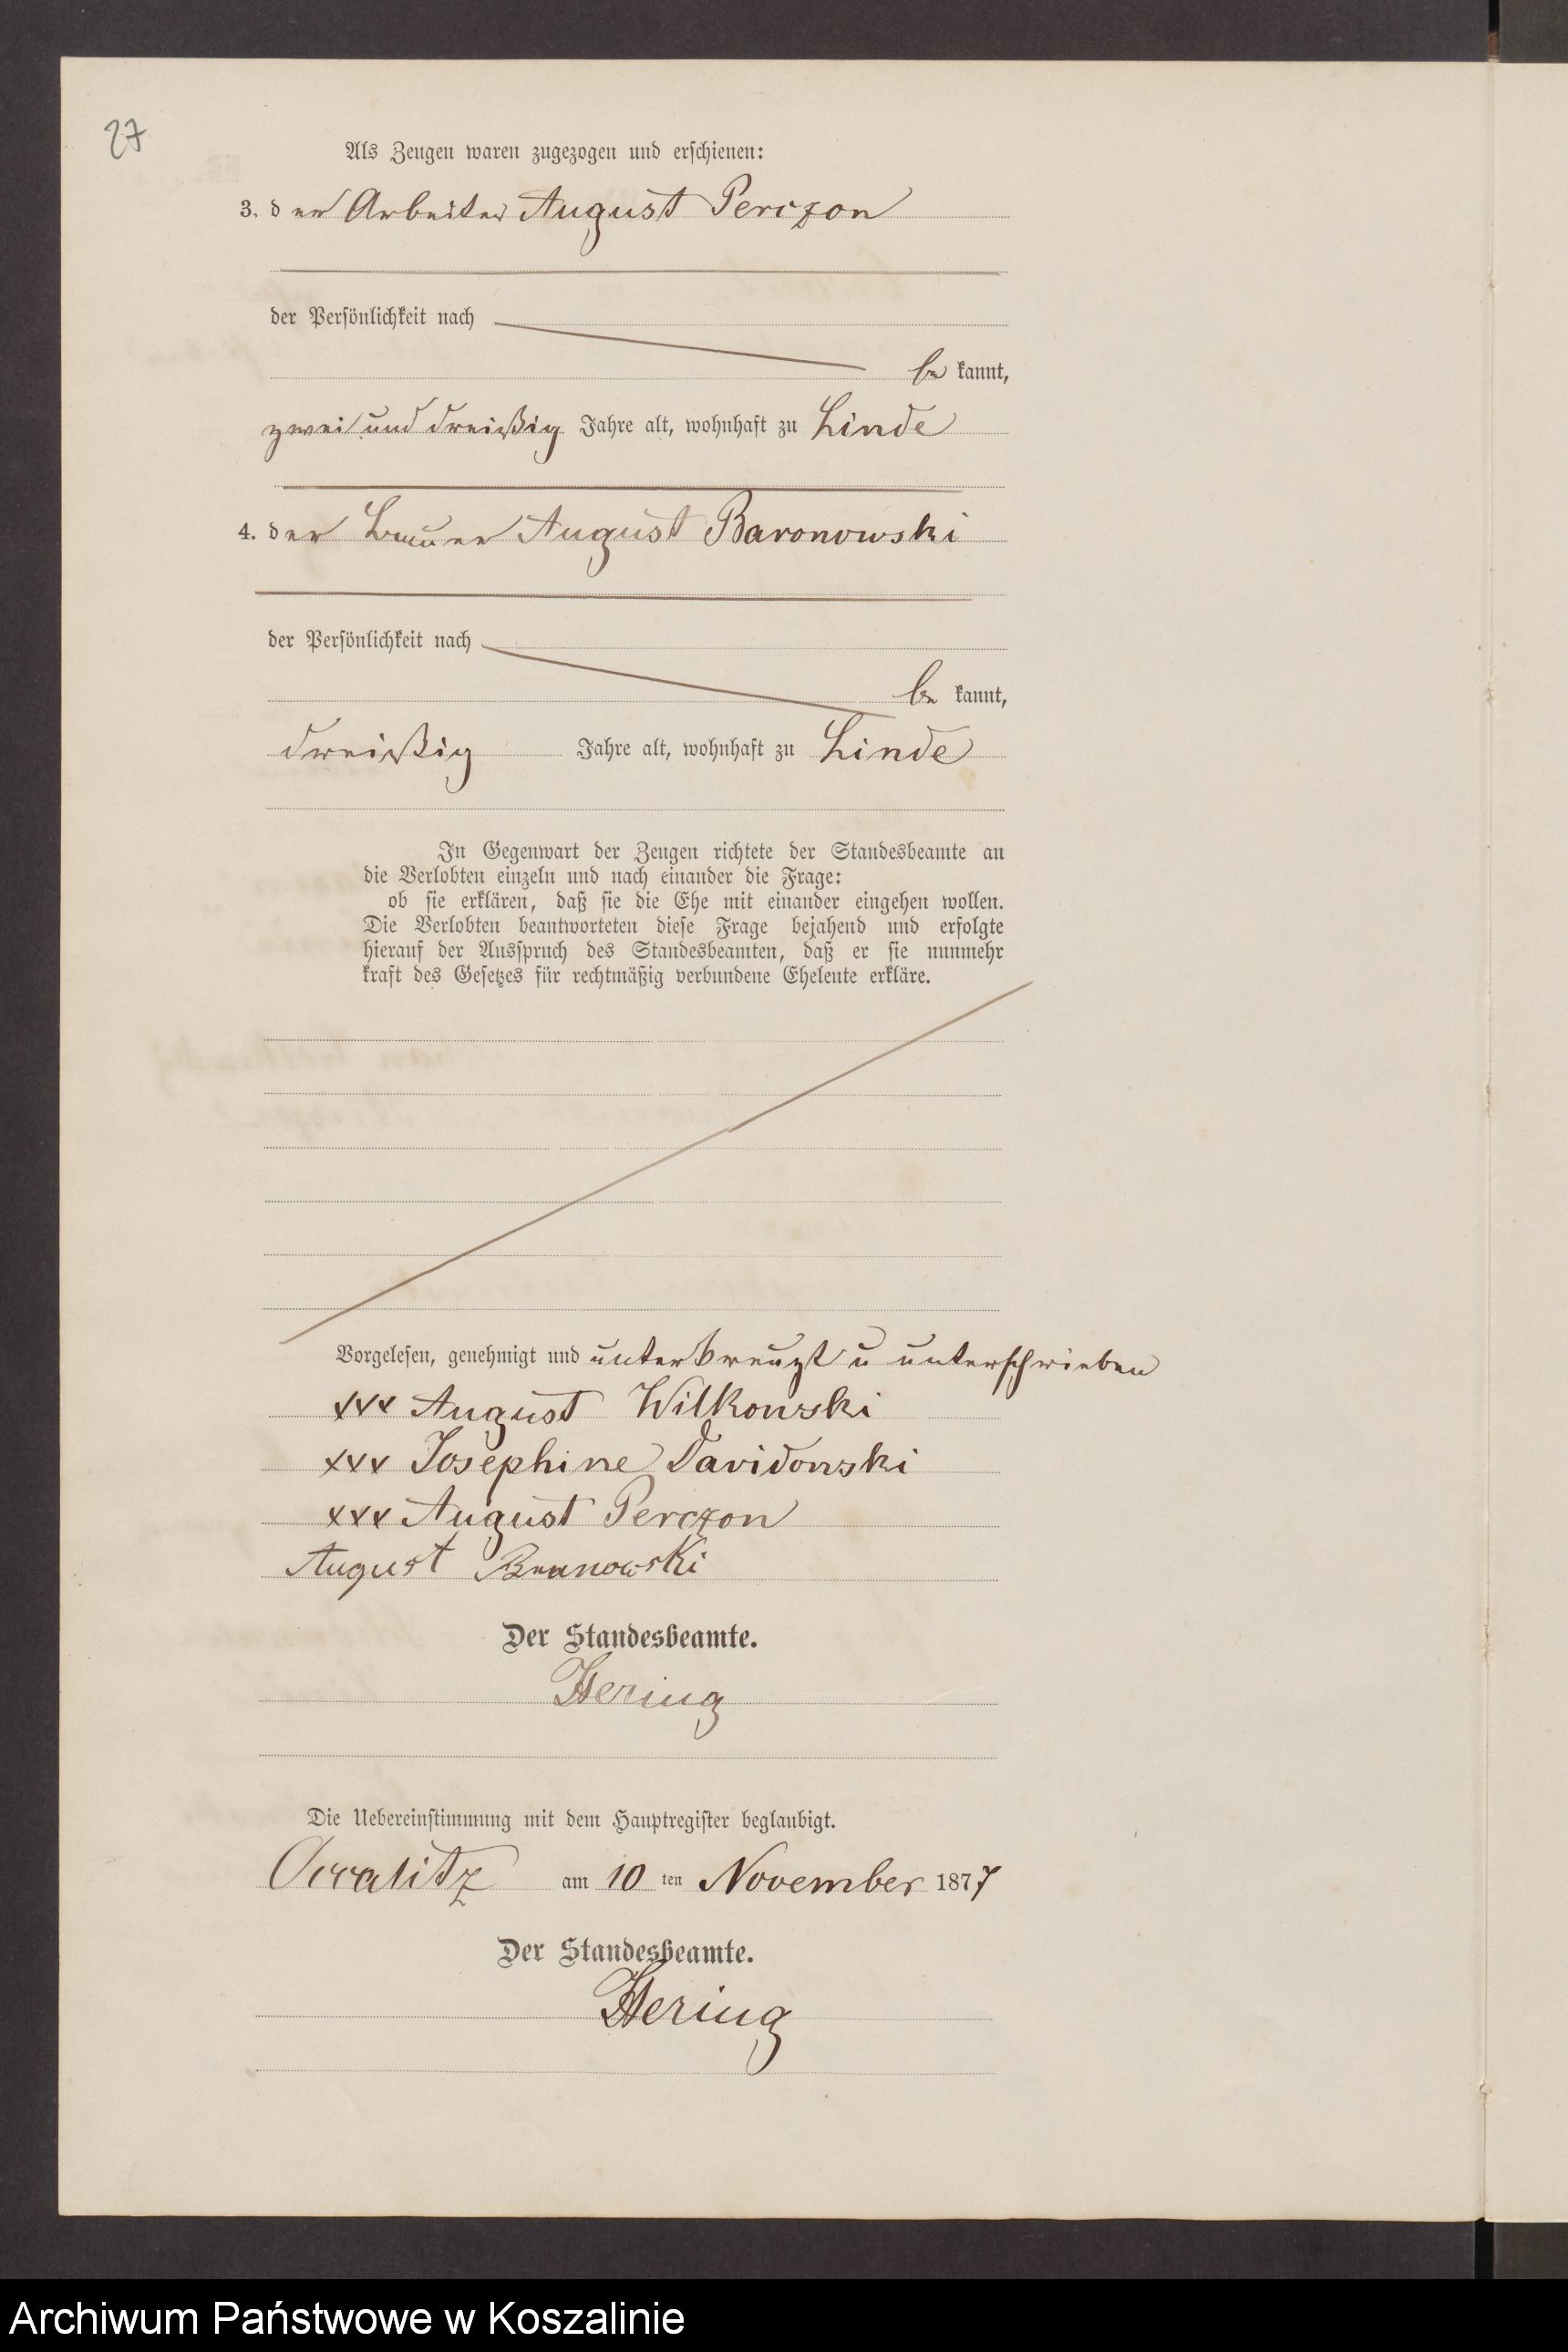 27
Als Zeugen waren zugezogen und erschienen:
3. der Arbeiter August Perczon
der Persönlichkeit nach
bekannt,
zwei und dreißig Jahre alt, wohnhaft zu Linde
4. der Bauer August Baronowski
der Persönlichkeit nach
bekannt,
dreißig Jahre alt, wohnhaft zu Linde
In Gegenwart der Zeugen richtete der Standesbeamte an
die Verlobten einzeln und nach einander die Frage:
ob sie erklären, daß sie die Ehe mit einander eingehen wollen.
Die Verlobten beantworteten diese Frage bejahend und erfolgte
hierauf der Ausspruch des Standesbeamten, daß er sie nunmehr
kraft des Gesetzes für rechtmäßig verbundene Eheleute erkläre.
Vorgelesen, genehmigt und unterkreuzt u unterschrieben
xxx August Wilkowski
xxx Josephine Davidowski
xxx August Perczon
August
Der Standesbeamte.
Hering
Die Uebereinstimmung mit dem Hauptregister beglaubigt.
am 10ten November 1877
Der Standesbeamte.
Hering
Archiwum Państwowe w Koszalinie